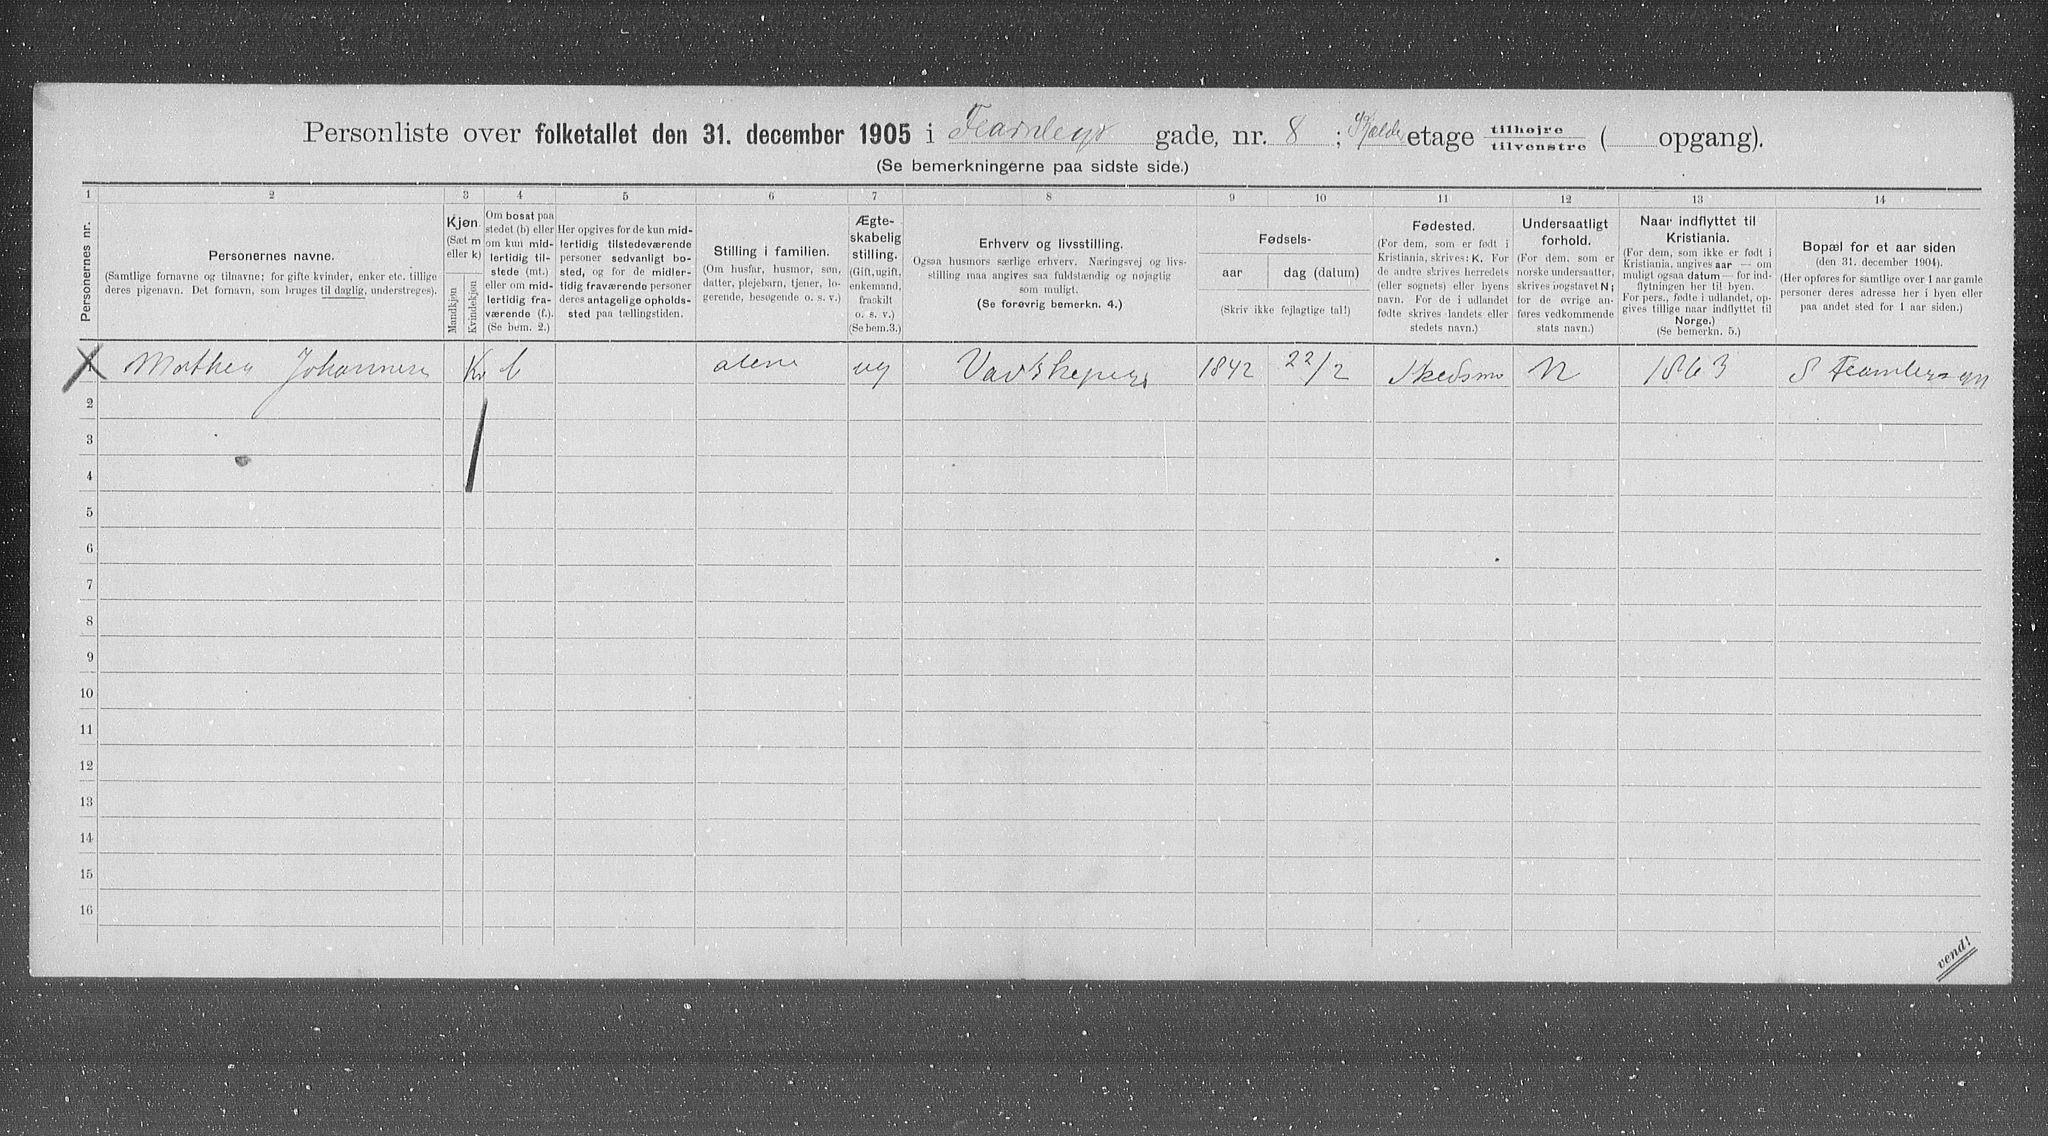 Personliste over folketallet den 31. december 1905 i Fearnleys gade, nr. 8 ; Kjelder etage tilhøjre tilvenstre ( opgang).
(Se bemerkningerne paa sidste side.)
1 2 3 4 5 6 7 8 9 10 11 12 13 14
Personernes nr.
Personernes navne.
(Samtlige fornavne og tilnavne; for gifte kvinder, enker etc. tillige
deres pigenavn. Det fornavn, som bruges til daglig, understreges).
Kjøn.
(Sæt m
eller k)
Mandkjøn
Kvindekjøn
Om bosat paa
stedet (b) eller
om kun mid-
lertidig til-
stede (mt.)
eller om mid-
lertidig fra-
værende (f.).
(Se bem. 2.)
Her opgives for de kun mid-
lertidig tilstedeværende
personer sedvanligt bo-
sted, og for de midler-
tidig fraværende personer
deres antagelige opholds-
sted paa tællingstiden.
Stilling i familien.
(Om husfar, husmor, søn,
datter, plejebarn, tjener, lo-
gerende, besøgende o. s. v.)
Ægte-
skabelig
stilling.
(Gift, ugift,
enkemand,
fraskilt
o. s. v.)
(Se bem.3.)
Erhverv og livsstilling.
Ogsaa husmors særlige erhverv. Næringsvej og livs-
stilling maa angives saa fuldstændig og nøjagtig
som muligt.
(Se forøvrig bemerkn. 4.)
Fødsels-
aar dag (datum)
(Skriv ikke fejlagtige tal!)
Fødested.
(For dem, som er født i
Kristiania, skrives: K. For
de andre skrives herredets
(eller sognets) eller byens
navn. For de i udlandet
fødte skrives landets eller
stedets navn.)
Undersaatligt
forhold.
(For dem, som er
norske undersaatter,
skrives bogstavet N;
for de øvrige an-
føres vedkommende
stats navn.)
Naar indflyttet til
Kristiania.
(For dem, som ikke er født i
Kristiania, angives aar — om
muligt ogsaa datum — for ind-
flytningen her til byen.
For pers., fødte i udlandet, op-
gives tillige naar indflyttet til
Norge.)
(Se bemerkn. 5.)
Bopæl for et aar siden
(den 31. december 1904).
(Her opføres for samtlige over 1 aar gamle
personer deres adresse her i byen eller
paa andet sted for 1 aar siden.)
1 Mathea Johannesen K b alene ug 1842 22/2 Skedsmo N 1863 8 Fearnleys gd
2
3
4
5
6
7
8
9
10
11
12
13
14
15
16
vend!